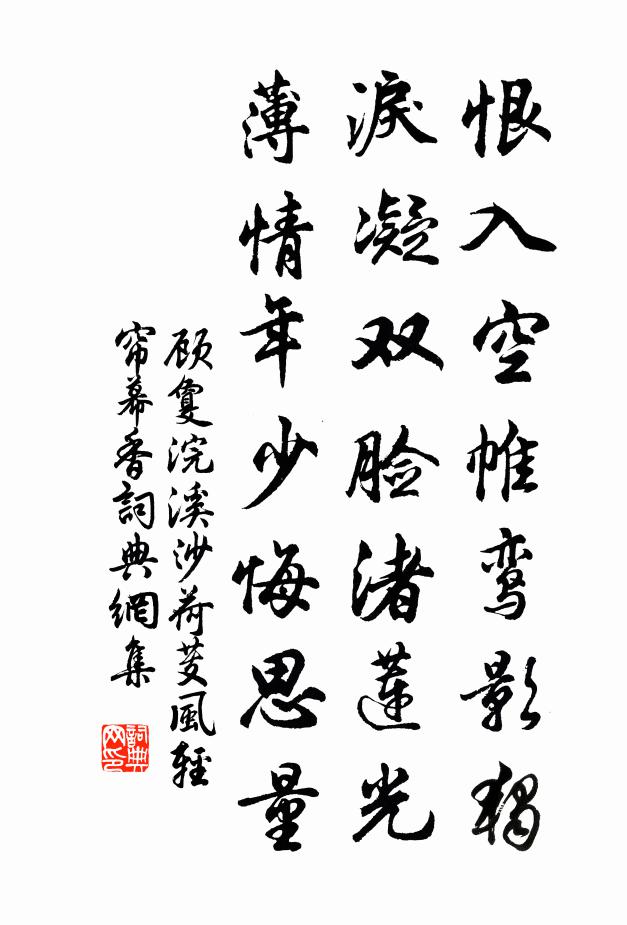 恨入空帷鸾影独
淚凝双脸渚莲光
薄情年少悔思量
顾夐浣溪沙荷芰風輕
帘幕香詞典網集
詞典网印